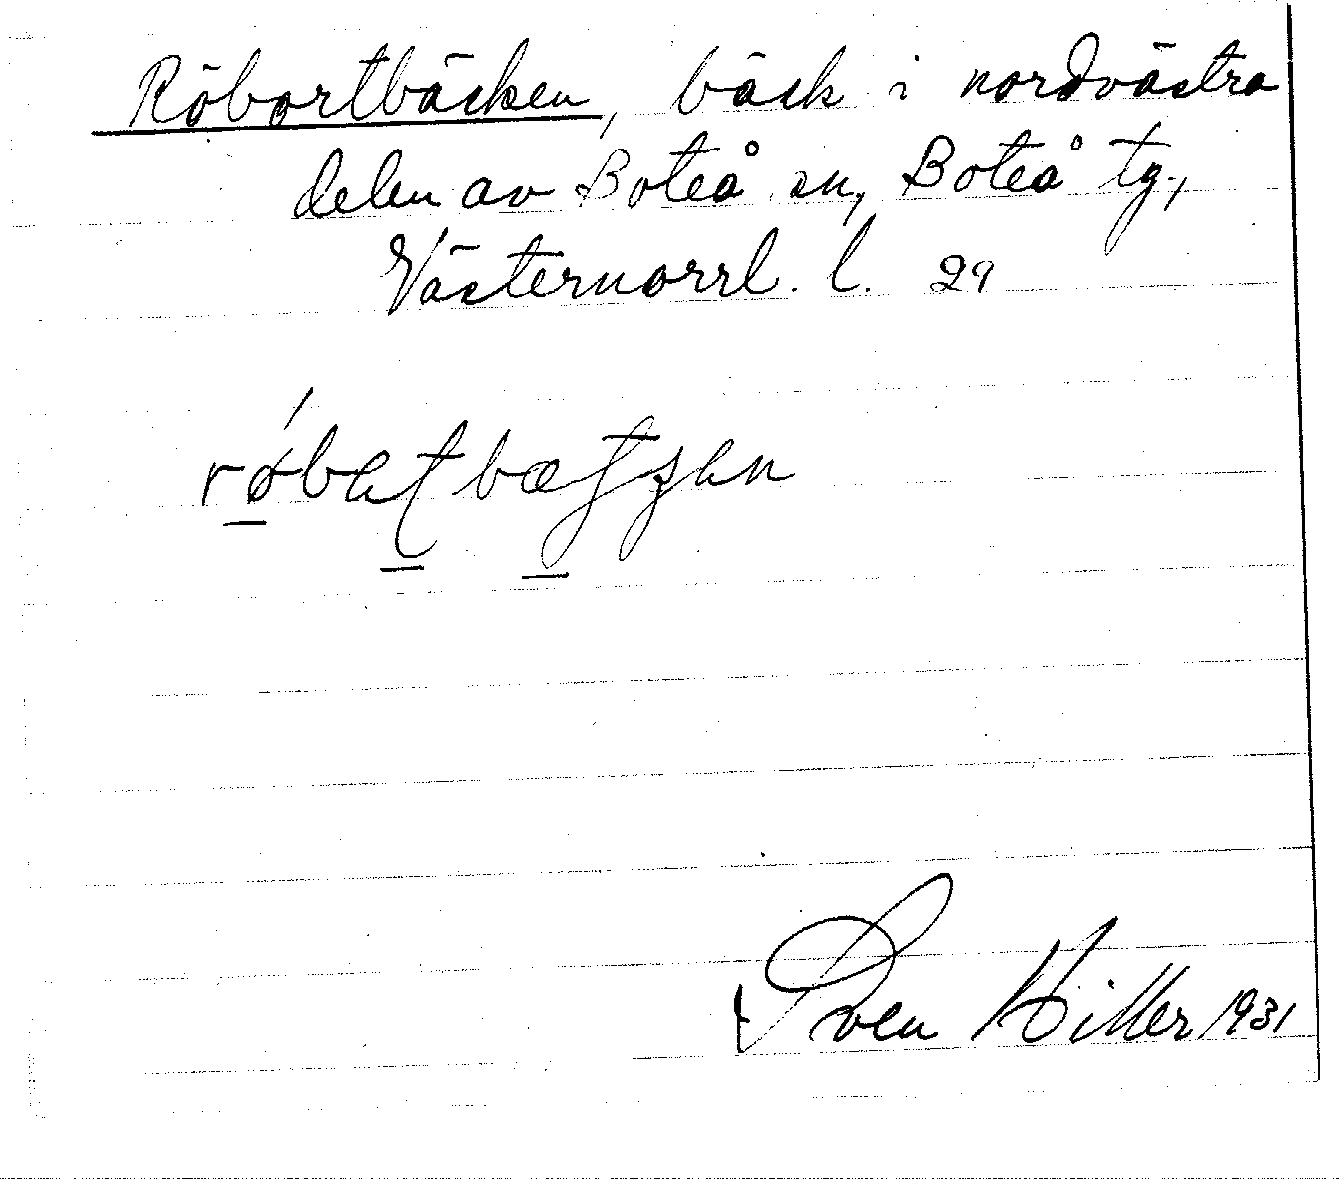 Röbortbäcken, bäck i nordvästra
delen av Boteå sn, Boteå tg.,
Västernorrl. l. 29
Sven Hiller 1931